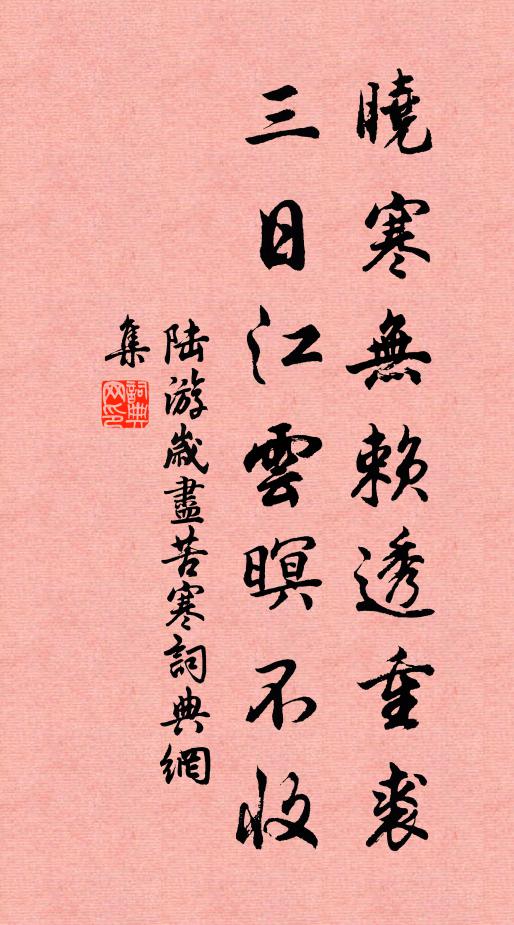 曉寒無賴透重裘
三日江雲暝不收
陸游歲盡苦寒詞典網
集
詞典网印